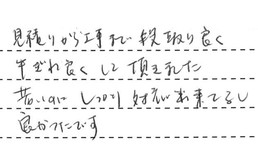 見積りから工事まで段取り良く
手ぎわ良くして頂きました
若いのにしっかり対応出来てるし
良かったです